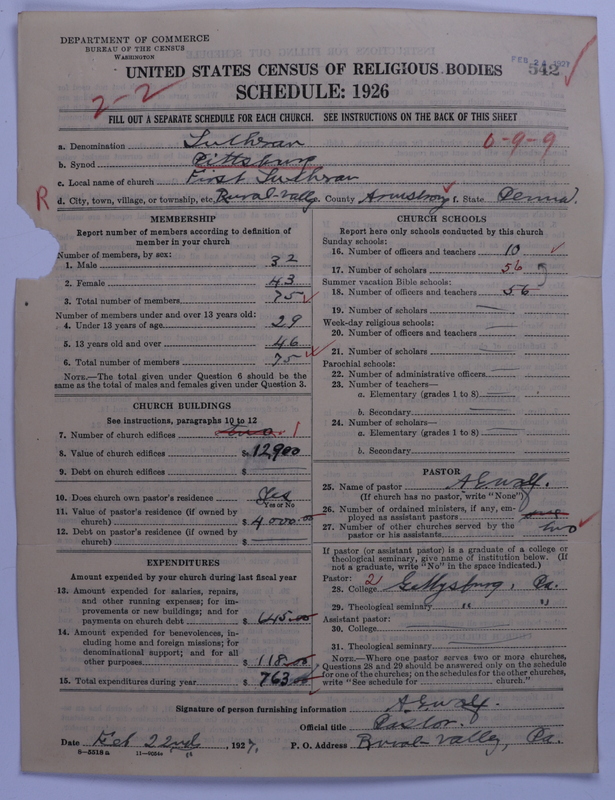 DEPARTMENT OF COMMERCE
BUREAU OF THE CENSUS
WASHINGTON
FEB 24 1927
542
UNITED STATES CENSUS OF RELIGIOUS BODIES
SCHEDULE: 1926
2-2
FILL OUT A SEPARATE SCHEDULE FOR EACH CHURCH. SEE INSTRUCTIONS ON THE BACK OF THIS SHEET
0-9-9
a. Denomination Lutheran
b. Synod Pittsburg
c. Local name of church First Lutheran
R
d. City, town, village, or township, etc. Rural-Valley e. County Armstrong f. State Penna.
MEMBERSHIP
Report number of members according to definition of
member in your church
Number of members, by sex:
1. Male 32
2. Female 43
3. Total number of members 75
Number of members under and over 13 years old:
4. Under 13 years of age 29
5. 13 years old and over 46
6. Total number of members 75
NOTE.—The total given under Question 6 should be the
same as the total of males and females given under Question 3.
CHURCH BUILDINGS
See instructions, paragraphs 10 to 12
7. Number of church edifices two 1
8. Value of church edifices $12,900
9. Debt on church edifices $
10. Does church own pastor's residence Yes
Yes or No
11. Value of pastor's residence (if owned by
church) $4,000.00
12. Debt on pastor's residence (if owned by
church) $
EXPENDITURES
Amount expended by your church during last fiscal year
13. Amount expended for salaries, repairs,
and other running expenses; for im-
provements or new buildings; and for
payments on church debt $645.00
14. Amount expended for benevolences, in-
cluding home and foreign missions; for
denominational support; and for all
other purposes $118.00
15. Total expenditures during year $763.00
CHURCH SCHOOLS
Report here only schools conducted by this church
Sunday schools:
16. Number of officers and teachers 10
17. Number of scholars 56
Summer vacation Bible schools:
18. Number of officers and teachers 56
19. Number of scholars
Week-day religious schools:
20. Number of officers and teachers
21. Number of scholars
Parochial schools:
22. Number of administrative officers
23. Number of teachers—
a. Elementary (grades 1 to 8)
b. Secondary
24. Number of scholars—
a. Elementary (grades 1 to 8)
b. Secondary
PASTOR
25. Name of pastor A E Wolf.
(If church has no pastor, write "None")
26. Number of ordained ministers, if any, em-
ployed as assistant pastors
27. Number of other churches served by the
pastor or his assistants two
If pastor (or assistant pastor) is a graduate of a college or
theological seminary, give name of institution below. (If
not a graduate, write "No" in the space indicated.)
Pastor: 2
28. College Gettysburg, Pa.
29. Theological seminary " "
Assistant pastor:
30. College
31. Theological seminary
NOTE.—Where one pastor serves two or more churches,
Questions 28 and 29 should be answered only on the schedule
for one of the churches; on the schedules for the other churches,
write "See schedule for church."
Signature of person furnishing information A E Wolf.
Official title Pastor.
Date Feb 22nd, 1927, P. O. Address Rural-Valley, Pa.
8-5518a